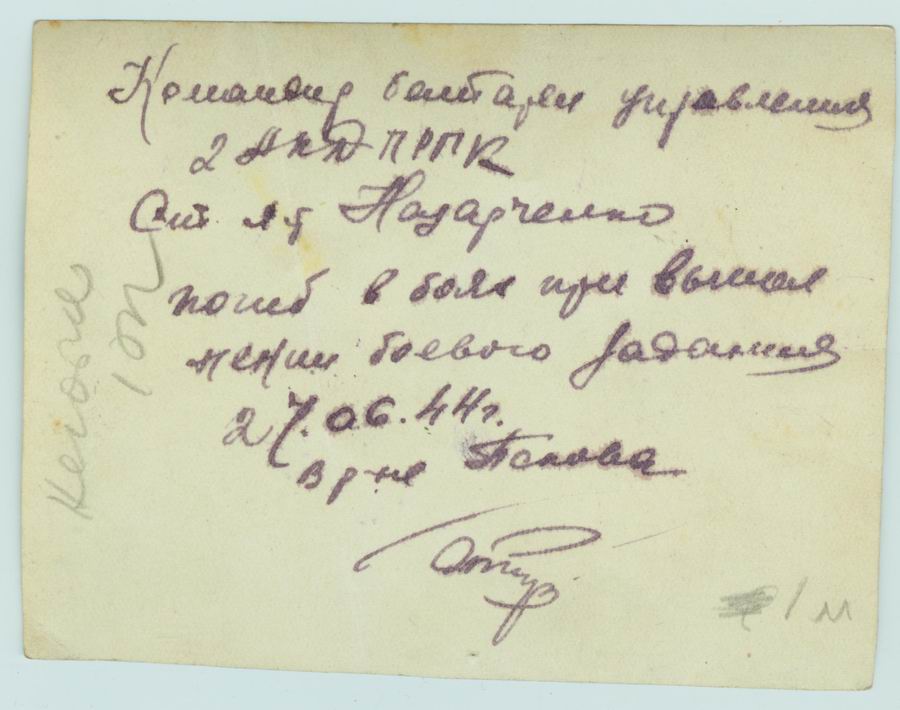 Командир батареи управления
2 АКД ПРГК
Ст л-т Назарченко
погиб в боях при выпол
нении боевого задания
27.06.44г.
в р-не Пскова
1 м